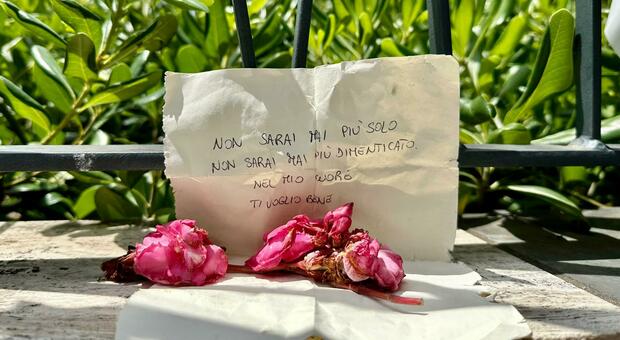 NON SARAI MAI PIÙ SOLO
NON SARAI MAI PIÙ DIMENTICATO.
NEL MIO CUORE
TI VOGLIO BENE